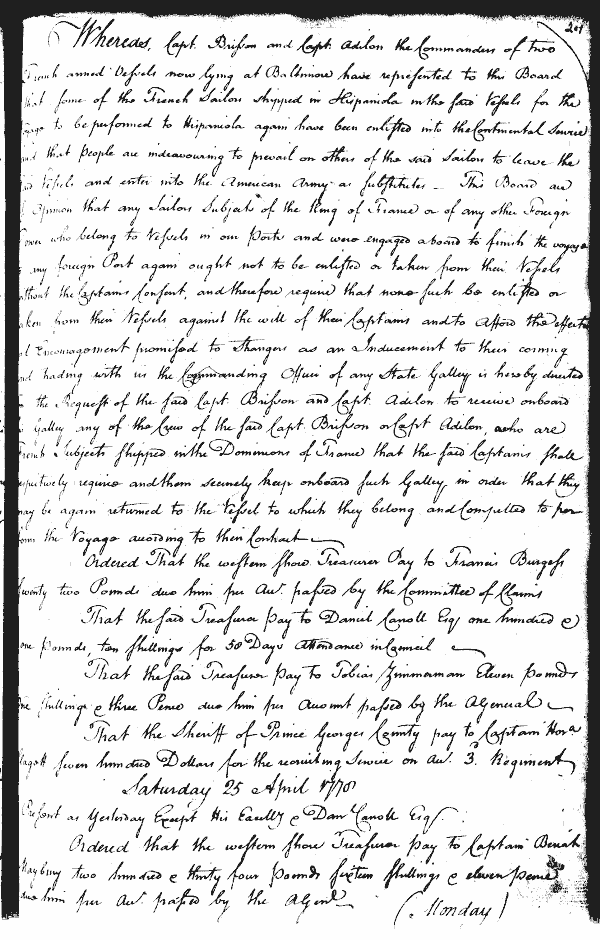 201
Whereas, Capt. Brisson and Capt. Adilon the Commanders of two
French armed Vessels now lying at Baltimore have represented to this Board
that some of the French Sailors shipped in Hispaniola in the said Vessels for the
to be performed to Hispaniola again have been enlisted into the Continental Service
and that People are indeavouring to prevail on others of the said Sailors to leave the
Vessels and enter into the American Army as Substitutes _ This Board are
Opinion that any Sailors Subject of the King of France or of any other Foreign
Power who belong to Vessels in our Ports and were engaged aboard to finish the voyage
any foreign Port again ought not to be enlisted or taken from their Vessels
without the Captains Consent, and therefore require that none such be enlisted or
taken from their Vessels against the will of their Captains and to Afford the effectu
Encouragement promissed to Strangers as an Inducement to their coming
and trading with us the Commanding Officer of any State Galley is hereby directed
the Request of the said Capt. Brisson and Capt. Adilon to receive onboard
Galley any of the Crew of the said Capt. Brisson or Capt Adilon, who are
French Subjects shipped in the Dominions of France that the said Captains shall
require and them securely keep onboard such Galley in order that they
may be again returned to the Vessel to which they belong and Compelled to per
form the Voyage according to their Contract
Ordered That the western Shore Treasurer Pay to Francis Burgess
twenty two Pounds due him per Acct. passed by the Committee of Claims
That the said Treasurer pay to Daniel Caroll Esqr one hundred &
one pounds, ten shillings for 58 Days Attendance in Council
That the said Treasurer pay to Tobias Zimmerman Eleven pounds
shillings & three Pence due him per Account passed by the AGeneral
That the Sheriff of Prince Georges County pay to Captain Hora
seven hundred Dollars for the recruiting Service on Acct. 3d. Regiment
Saturday 25 April 1778
Present as Yesterday Except His Excellcy & Danl Caroll Esqr
Ordered that the western shore Treasurer pay to Captain
two hundred & thirty four pounds sixteen shillings & eleven pence
due him per Acct. passed by the AGenl
(Monday)